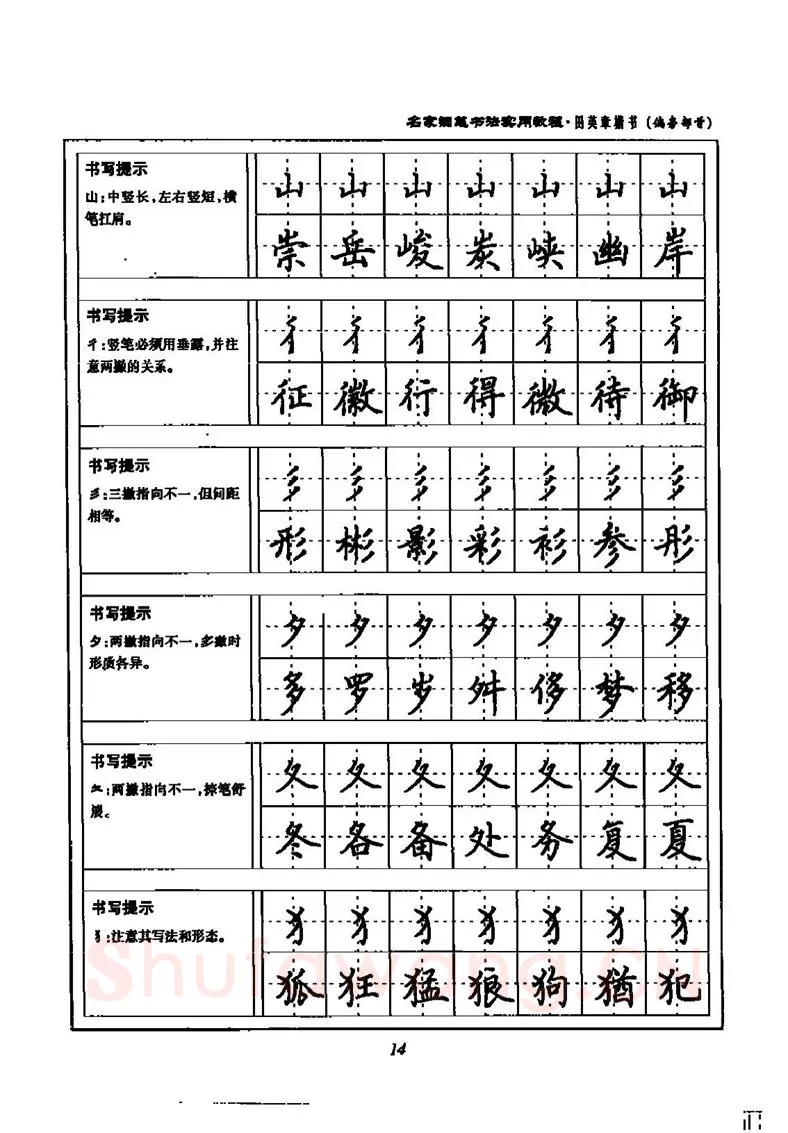 名家钢笔书法实用教程·田英章楷书（偏旁部首）
书写提示
山:中竖长,左右竖短,横
笔扛肩。
山 山 山 山 山 山 山
崇 岳 峻 炭 峡 幽 岸
书写提示
彳:竖笔必须用垂露,并注
意两撇的关系。
彳 彳 彳 彳 彳 彳 彳
征 徽 行 得 微 待 御
书写提示
彡:三撇指向不一,但间距
相等。
彡 彡 彡 彡 彡 彡 彡
形 彬 影 彩 衫 参 彤
书写提示
夕:两撇指向不一,多撇时
形质各异。
夕 夕 夕 夕 夕 夕 夕
多 罗 岁 舛 侈 梦 移
书写提示
夂:两撇指向不一,捺笔舒
展。
夂 夂 夂 夂 夂 夂 夂
冬 各 备 处 务 复 夏
书写提示
犭:注意其写法和形态。
犭 犭 犭 犭 犭 犭 犭
狐 狂 猛 狼 狗 猶 犯
Shufawang.CN
14